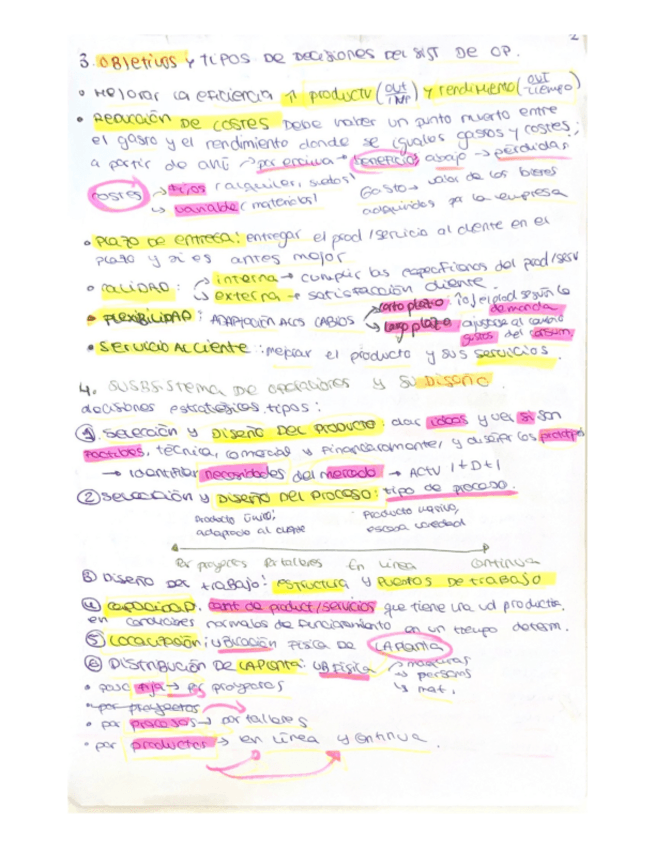 2
3. Objetivos y tipos de decisiones del sist de op.
• Mejorar la eficiencia ↑ productv (out/inp) y rendimiento (out/tiempo)
• Reducción de costes debe haber un punto muerto entre
el gasto y el rendimiento donde se igualos gastos y costes;
a partir de ahí → por encima → beneficios abajo → perdidas
costes → fijos (alquiler, sueldos)
↳ variable (materiales)
Gasto → valor de los bienes
adquiridos pa la empresa
• Plazo de entrega: entregar el prod/servicio al cliente en el
plazo y si es antes mejor
• calidad: → interna → cumplir las especificions del prod/serv
↳ externa → satisfacción cliente.
• Flexibilidad: adaptación a los cambios → corto plazo: el prod según la demanda
↳ largo plazo: ajustarse al cambio gustos del consum
• Servicio al cliente: mejorar el producto y sus servicios.
4. Subsistema de operaciones y su diseño.
decisiones estratégicas, tipos:
① Selección y diseño del producto: dar ideas y ver si son
factibles, técnica, comercial y financieramente, y diseñar los prototipos
→ identificar necesidades del mercado → Actv I+D+I
② Selección y diseño del proceso: tipo de proceso.
Producto único; adaptado al cliente
Producto masivo, escasa variedad
Por proyectos Por talleres En línea Continua
③ Diseño del trabajo: estructura y puestos de trabajo
④ capacidad. cant de product/servicios que tiene una ud productiv.
en condiciones normales de funcionamiento en un tiempo determ.
⑤ Localización: ubicación física de la planta
⑥ Distribución de la planta: ub física → máquinas
→ personas
↳ mat.
• posc fija → por proyectos
• por proyectos
• por procesos → por talleres
• por productos → en línea y continua.